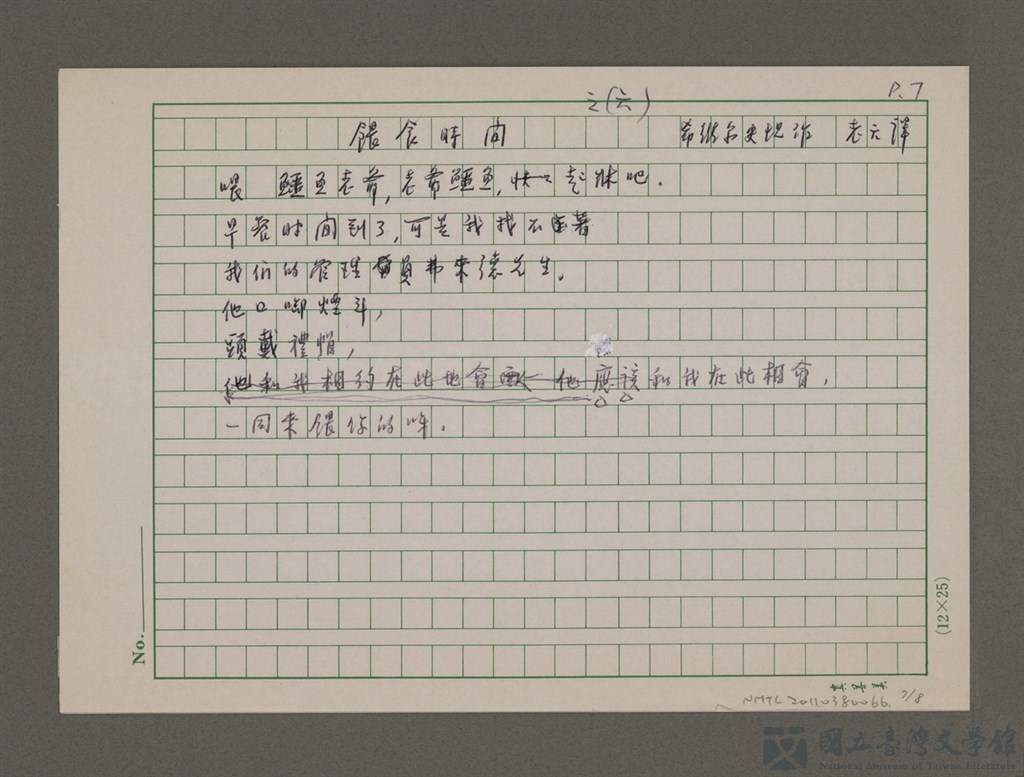 P.7
之(六)
餵食時間 希尔 作 老六譯
喂 鱷魚老爺,老爺鱷魚,快 起牀吧.
早餐时间到了,可是我找不著
我们的管理員弗來德先生。
他口啣煙斗,
頭戴禮帽,
他和我相約在此地會 他應該和我在此相會,
一同來餵你的呀.
No.
(12×25)
NMTL 20110380066 7/8
國立臺灣文學館
National Museum of Taiwan Literature